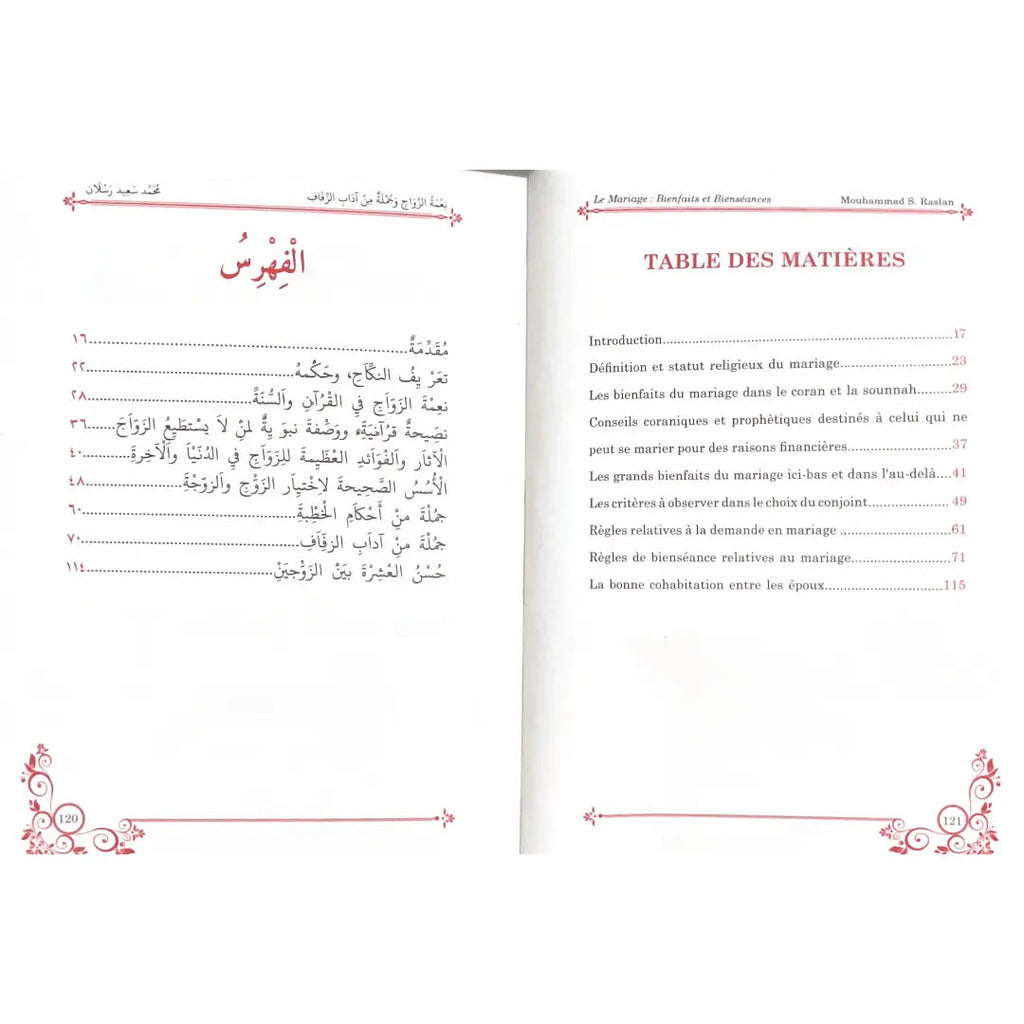 محَمَّد سَعِيد رَسْلَان
نِعْمَةُ الزَّوَاجِ وَجُمْلَةٌ مِنْ آدَابِ الزِّفَافِ
الْفِهْرِسُ
مُقَدِّمَةٌ................................................١٦
تعَرْ يِفُ النكِّاَحِ، وحَكْمهُ................................٢٢
نعِمْةَ الزَوّاَجِ فيِ القْرُآنِ واَلسُّنةَّ................................٢٨
نصَيِحةٌ قرُآنيَةَّ، ووصَْفةَ نبوَ يةٌّ لمنَْ لاَ يسَْتطَيِعُ الزَوّاَجَ......٣٦
الْآثاَر واَلفْوَاَئدِ العْظَيِمةَ للِزوَّاَجِ فيِ الدُنّيْاَ واَلْآخِرةَِ............٤٠
الْأُسُسُ الصَّحِيحةَ لاِخْتيِاَر الزوَّْجِ واَلزوّجْةَِ........................٤٨
جمُلْةَ منِْ أَحكْاَمِ الْخطِْبةَِ................................٦٠
جمُلْةَ منِْ آداَبِ الزفِّاَفِ................................٧٠
حُسْنُ العْشِرْةَ بيَنَْ الزَوّجْيَنِْ................................١١٤
120
Le Mariage : Bienfaits et Bienséances Mouhammad S. Raslan
TABLE DES MATIÈRES
Introduction................................................17
Définition et statut religieux du mariage............................23
Les bienfaits du mariage dans le coran et la sounnah.........29
Conseils coraniques et prophètiques destinés à celui qui ne
peut se marier pour des raisons financières..........................37
Les grands bienfaits du mariage ici-bas et dans l'au-delà....41
Les critères à observer dans le choix du conjoint.................... 49
Règles relatives à la demande en mariage ............................61
Règles de bienséance relatives au mariage.........................71
La bonne cohabitation entre les époux.............................115
121